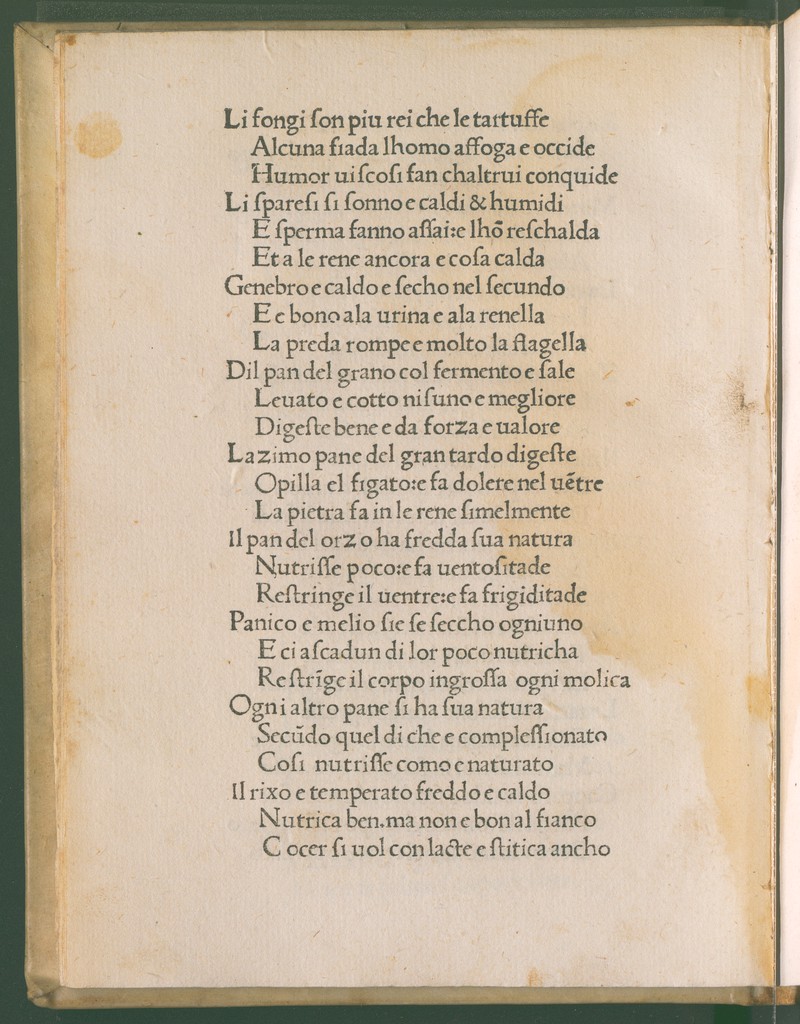 Li fongi ſon piu rei che le tartuffe
Alcuna fiada lhomo affoga e occide
Humor uiſcoſi fan chaltrui conquide
Li ſpareſi ſi ſonno e caldi & humidi
E ſperma fanno aſſai:e lhō reſchalda
Et a le rene ancora e coſa calda
Genebro e caldo e ſecho nel ſecundo
E e bono ala urina e ala renella
La preda rompe e molto la flagella
Dil pan del grano col fermento e ſale
Leuato e cotto niſuno e megliore
Digeſte bene e da forza e ualore
Lazimo pane del gran tardo digeſte
Opilla el figato:e fa dolere nel uētre
La pietra fa in le rene ſimelmente
Il pan del orzo ha fredda ſua natura
Nutriſſe poco:e fa uentoſitade
Reſtringe il uentre:e fa frigiditade
Panico e melio ſie ſe ſeccho ogniuno
E ci aſcadun di lor poco nutricha
Reſtrīge il corpo ingroſſa ogni molica
Ogni altro pane ſi ha ſua natura
Secūdo quel di che e compleſſionato
Coſi nutriſſe como e naturato
Il rixo e temperato freddo e caldo
Nutrica ben.ma non e bon al fianco
Cocer ſi uol con lacte e ſtitica ancho